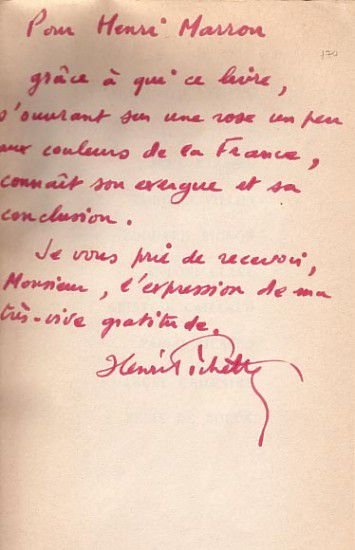 Pour Henri Marrou
170
grâce à qui ce livre,
s'ouvrant sur une rose un peu
aux couleurs de la France,
connaît son exergue et sa
conclusion.
Je vous prie de recevoir,
Monsieur, l'expression de ma
très-vive gratitude.
Henri Pichette